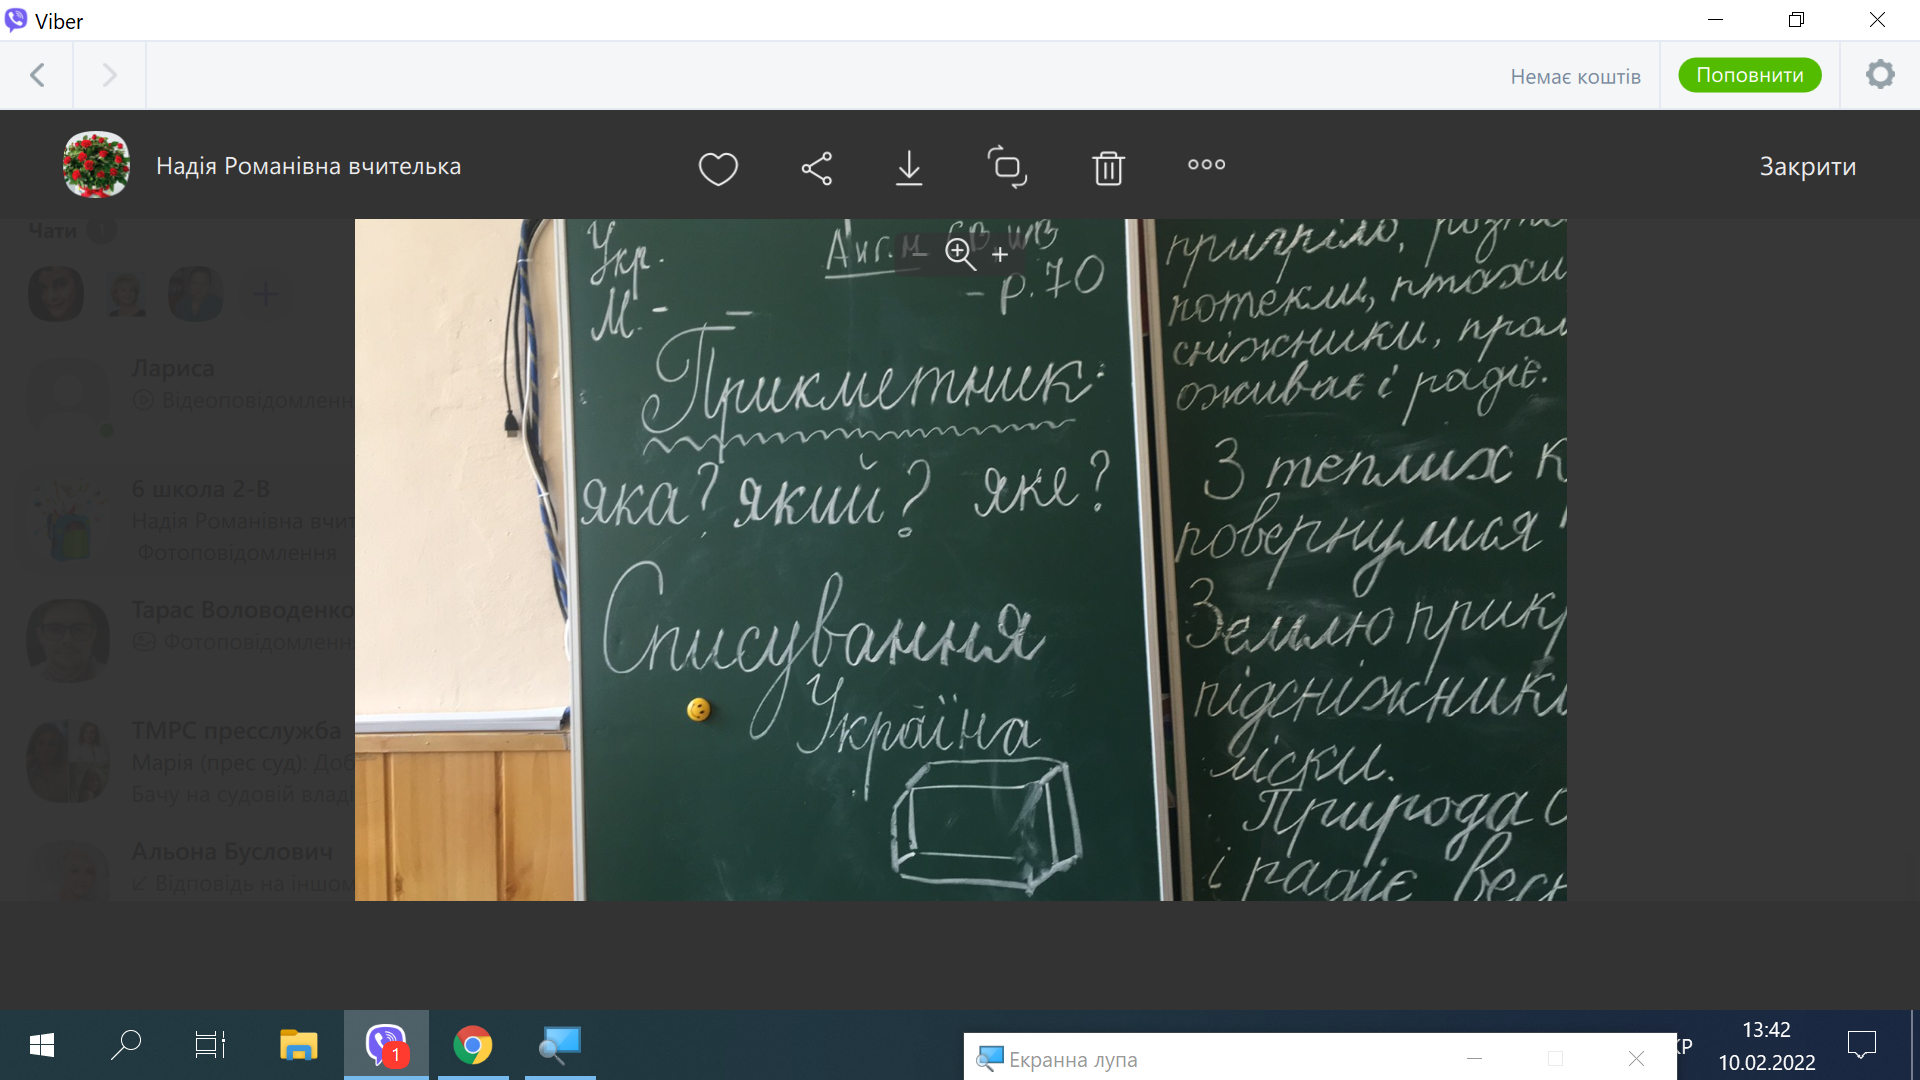 Viber
Немає коштів
Поповнити
Надія Романівна вчителька
Закрити
Чати 1
Лариса
Відеоповідомленн
6 школа 2-В
Надія Романівна вчит
Фотоповідомлення
Тарас Володенко
Фотоповідомленн
ТМРС пресслужба
Марія (прес суд): Доб
Бачу на судовій влад
Альона Буслович
Відповідь на іншом
Укр.
М. - -
Анг.м
- р. 70
Прикметник:
яка? який? яке?
Списування
Україна
пригріло,
потекли, птахи
сніжники, прол
оживає і радіє.
З теплих к
повернулися
Землю прикр
підсніжник
ліски.
Природа о
і радіє весн
1
Екранна лупа
КР
13:42
10.02.2022